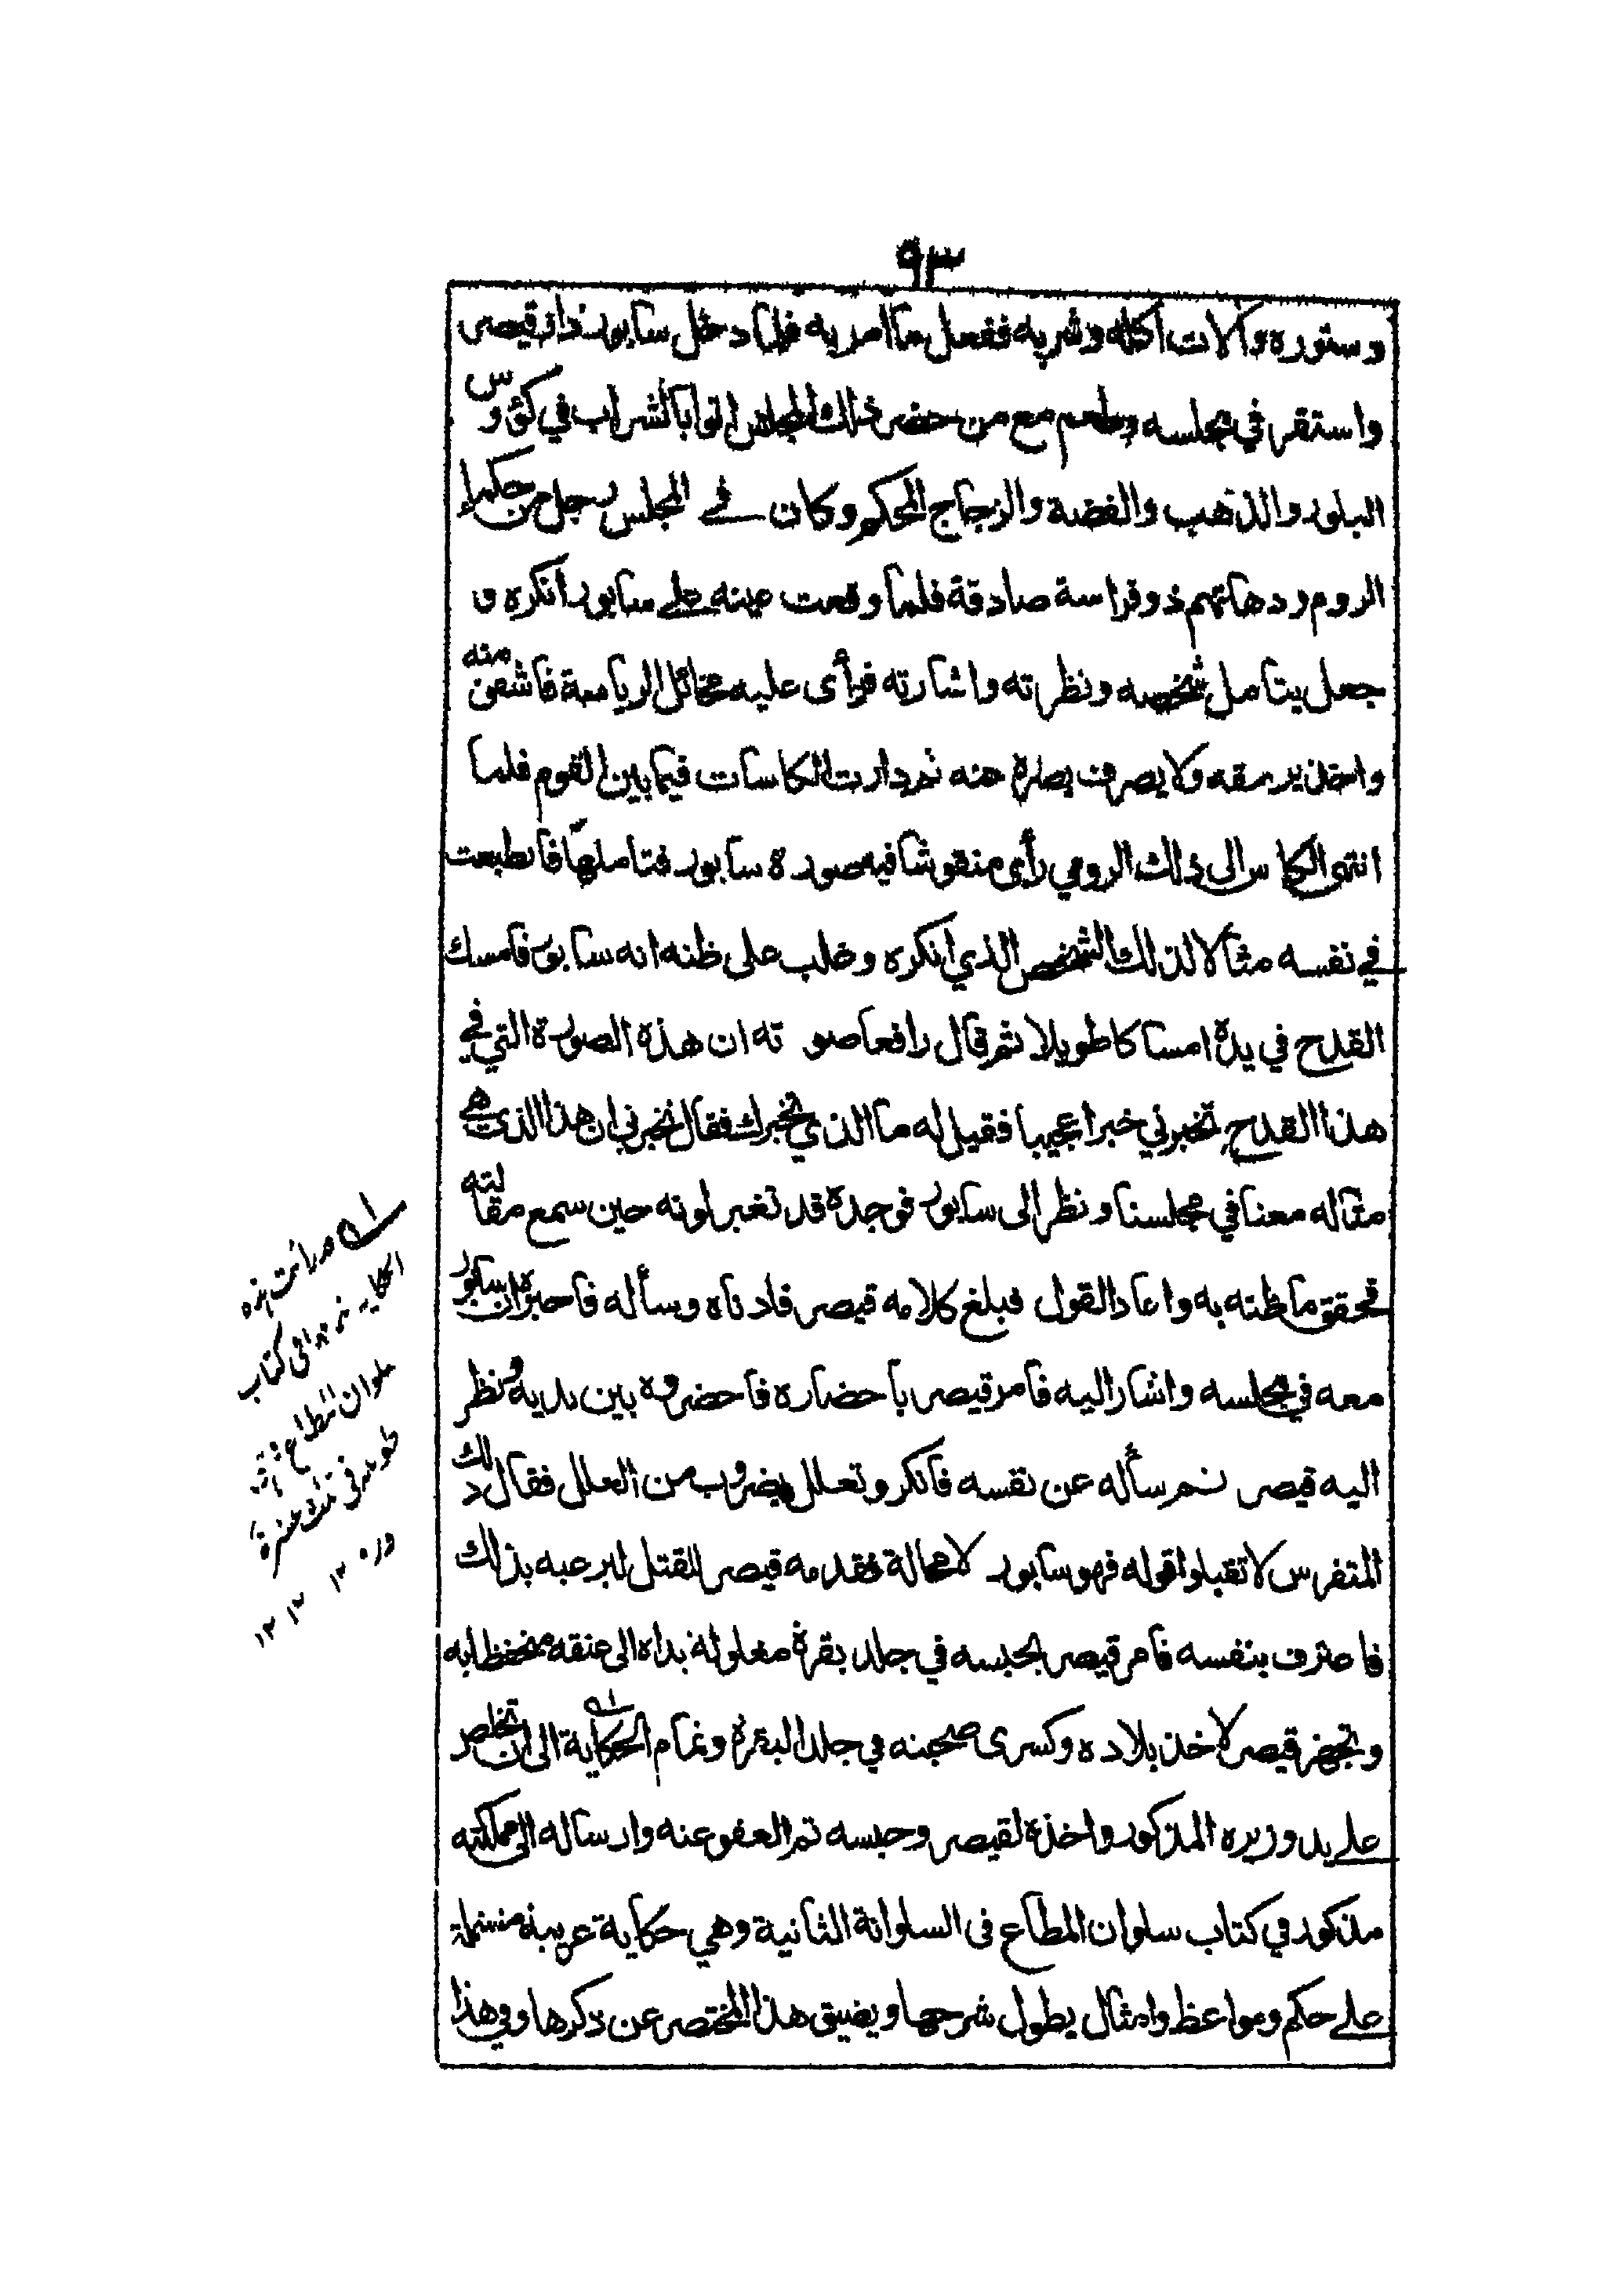 ٩٣
وستوره وآلات اكله وشربه ففعل ما امر به فلما دخل سابور دار قيصر
واستقر في مجلسه وطعم مع من حضر ذلك المجلس اتوا بالشراب في كؤوس
البلور والذهب والفضة والزجاج المحكم وكان في المجلس رجل من حكماء
الروم ودهاتهم ذو فراسة صادقة فلما وقعت عينه على سابور انكره و
جعل يتامل شخصه ونظرته واشارته فرأى عليه مخائل الرياسة فاشمن منه
واخذ يرمقه ولا يصرف بصره عنه ثم دارت الكاسات فيما بين القوم فلما
انتهى الكاس الى ذلك الرومي رأى منقوشا فيه صورة سابور فتاملها فانطبعت
في نفسه مثالا لذلك الشخص الذي انكره وغلب على ظنه انه سابور فامسك
القدح في يده امساكا طويلا ثم قال رافعا صوته ان هذه الصورة التي في
هذا القدح تخبرني خبرا عجيبا فقيل له ما الذي تخبرك فقال تخبرني ان هذا الذي هي
مثاله معنا في مجلسنا ونظر الى سابور فوجده قد تغير لونه حين سمع مقالته
فحقق ما ظنه به واعاد القول فبلغ كلامه قيصر فادناه وسأله فاخبره ان سابور
معه في مجلسه واشار اليه فامر قيصر باحضاره فاحضروه بين يديه ونظر
اليه قيصر ثم سأله عن نفسه فانكر وتعلل بضروب من العلل فقال ذلك
المتفرس لا تقبلوا قوله فهو سابور لا محالة فقدمه قيصر للقتل ليرعبه بذلك
فاعترف بنفسه فامر قيصر بحبسه في جلد بقرة مغلولة يداه الى عنقه متحفظا به
وتجهز قيصر لاخذ بلاده وكسرى صحبته في جلد البقرة وتمام الحكاية الى ان تخلص
على يد وزيره المذكور واخذه لقيصر وحبسه ثم العفو عنه وارساله الى مملكته
مذكور في كتاب سلوان المطاع في السلوانة الثانية وهي حكاية غريبة مشتملة
على حكم ومواعظ وامثال يطول شرحها ويضيق هذا المختصر عن ذكرها وفي هذا
رأيت هذه
الحكاية كتاب
سلوان المطاع